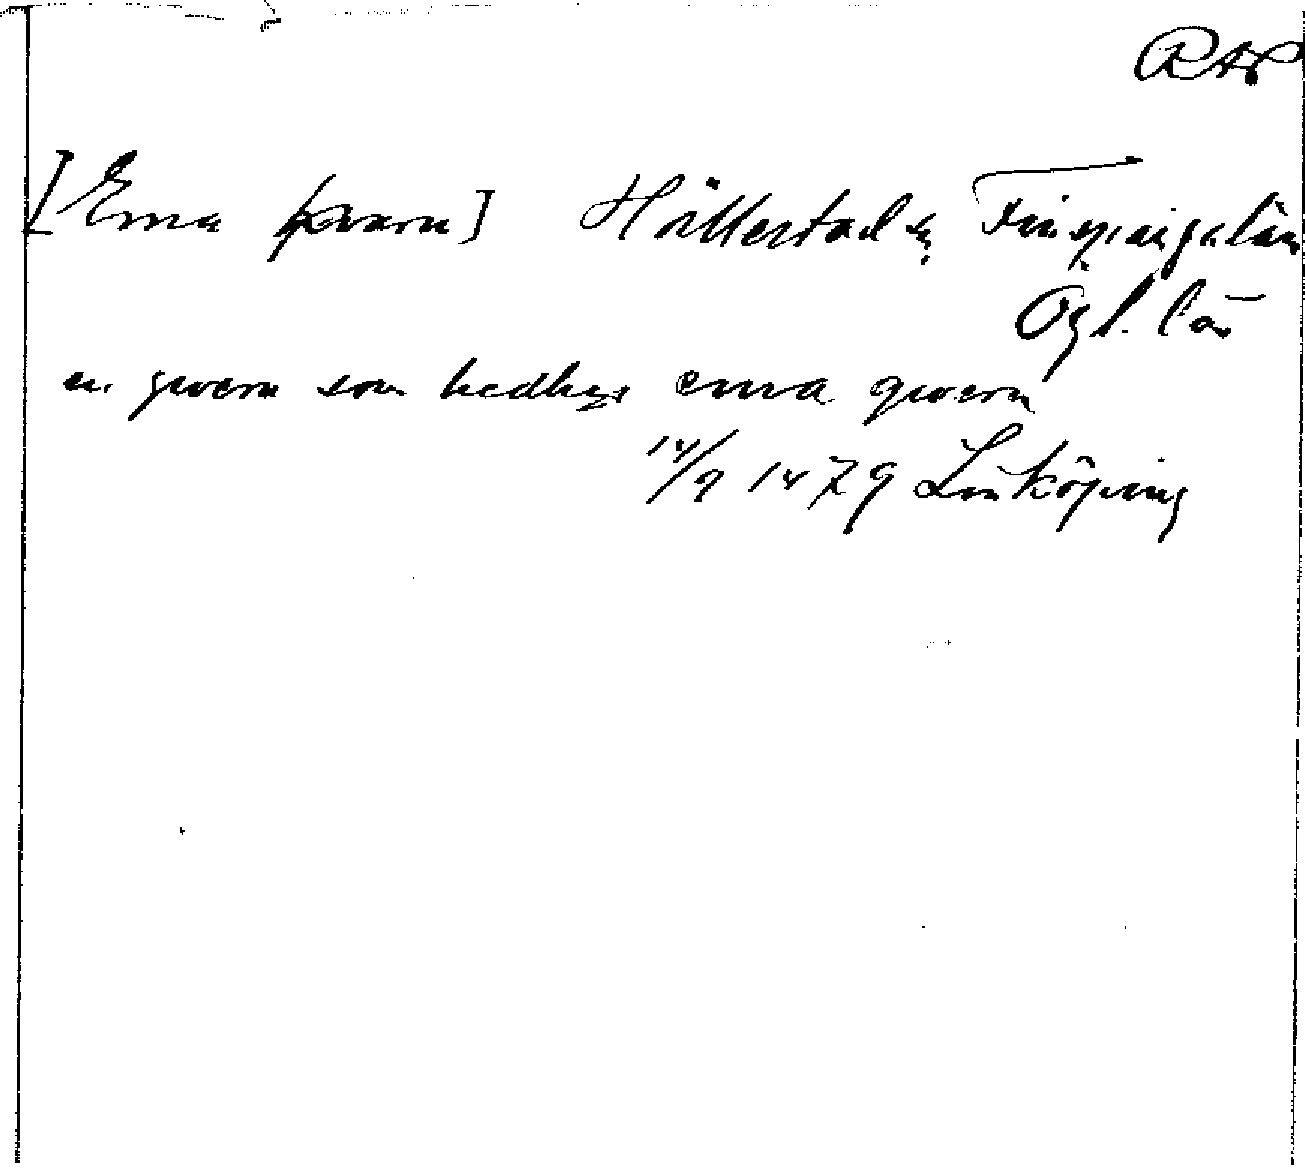 RAP
[Erna kvarn] Hällestad sn Finspångs län
Ögl. län
en qwern som hedhes erna qwern
14/9 1479 Linköping